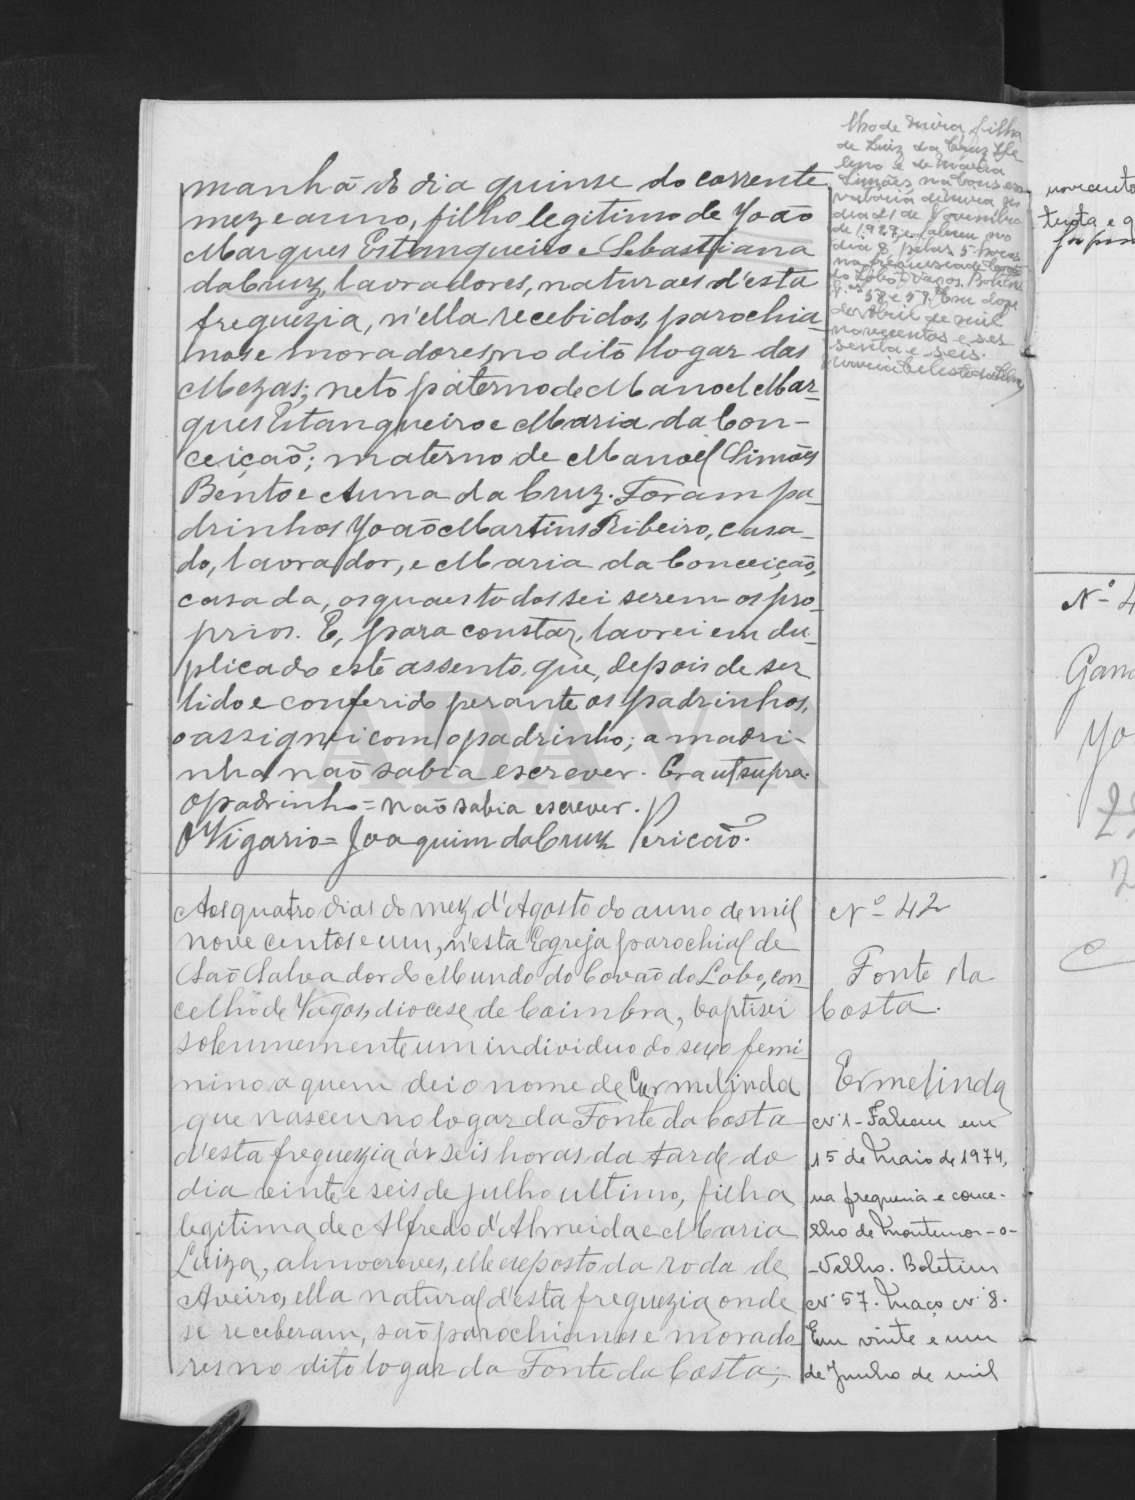 manhã do dia quinse do corrente
mez e anno, filho legitimo de João
Marques Estanqueiro e Sebastiana
da Cruz, lavradores, naturaes d'esta
freguezia, n'ella recebidos, parochia-
nos e moradores no dito logar das
Mezas; neto paterno de Manoel Mar-
ques Estanqueiro e Maria da Con-
ceição; materno de Manoel Simões
Bento e Anna da Cruz. Foram pa-
drinhos João Martins Ribeiro, casa-
do, lavrador, e Maria da Conceição,
casada, os quaes todos sei serem os pro-
prios. E, para constar, lavrei em du-
plicado este assento, que, depois de ser
lido e conferido perante os padrinhos,
o assignei com o padrinho; a madri-
nha não sabia escrever. Era ut supra.
O padrinho = não sabia escrever.
O Vigario = Joaquim da Cruz Pericão.
lho de Mira, filha
de Luiz da Cruz
e de Maria
Simões, na
dia 21 de Novembro
de 1928, e faleceu no
dia 8 pelas 5 horas
na freguesia de Covão
do Lobo, Vagos. Boletins
n.os 58 e 59. Em doze
de Abril de mil
novecentos e ses
senta e seis.
Aos quatro dias do mez d'Agosto do anno de mil
nove centos e um, n'esta Egreja parochial de
São Salvador do Mundo do Covão do Lobo, con-
celho de Vagos, diocese de Coimbra, baptisei
solemnemente um individuo do sexo femi-
nino a quem dei o nome de Ermelinda
que nasceu no logar da Fonte da Costa
d'esta freguezia ás seis horas da tarde do
dia vinte e seis de julho ultimo, filha
legitima de Alfredo d'Almeida e Maria
Luiza, almocreves, elle exposto da roda de
Aveiro, ella natural d'esta freguezia onde
se receberam, são parochianos e morado-
res no dito logar da Fonte da Costa;
Nº 42
Fonte da
Costa.
Ermelinda
Nº 1 - Faleceu em
15 de Maio de 1974,
na freguesia e conce-
lho de Montemor-o-
-Velho. Boletim
Nº 57. Maço Nº 8.
Em vinte e um
de Junho de mil
Nº 4
ADAVR